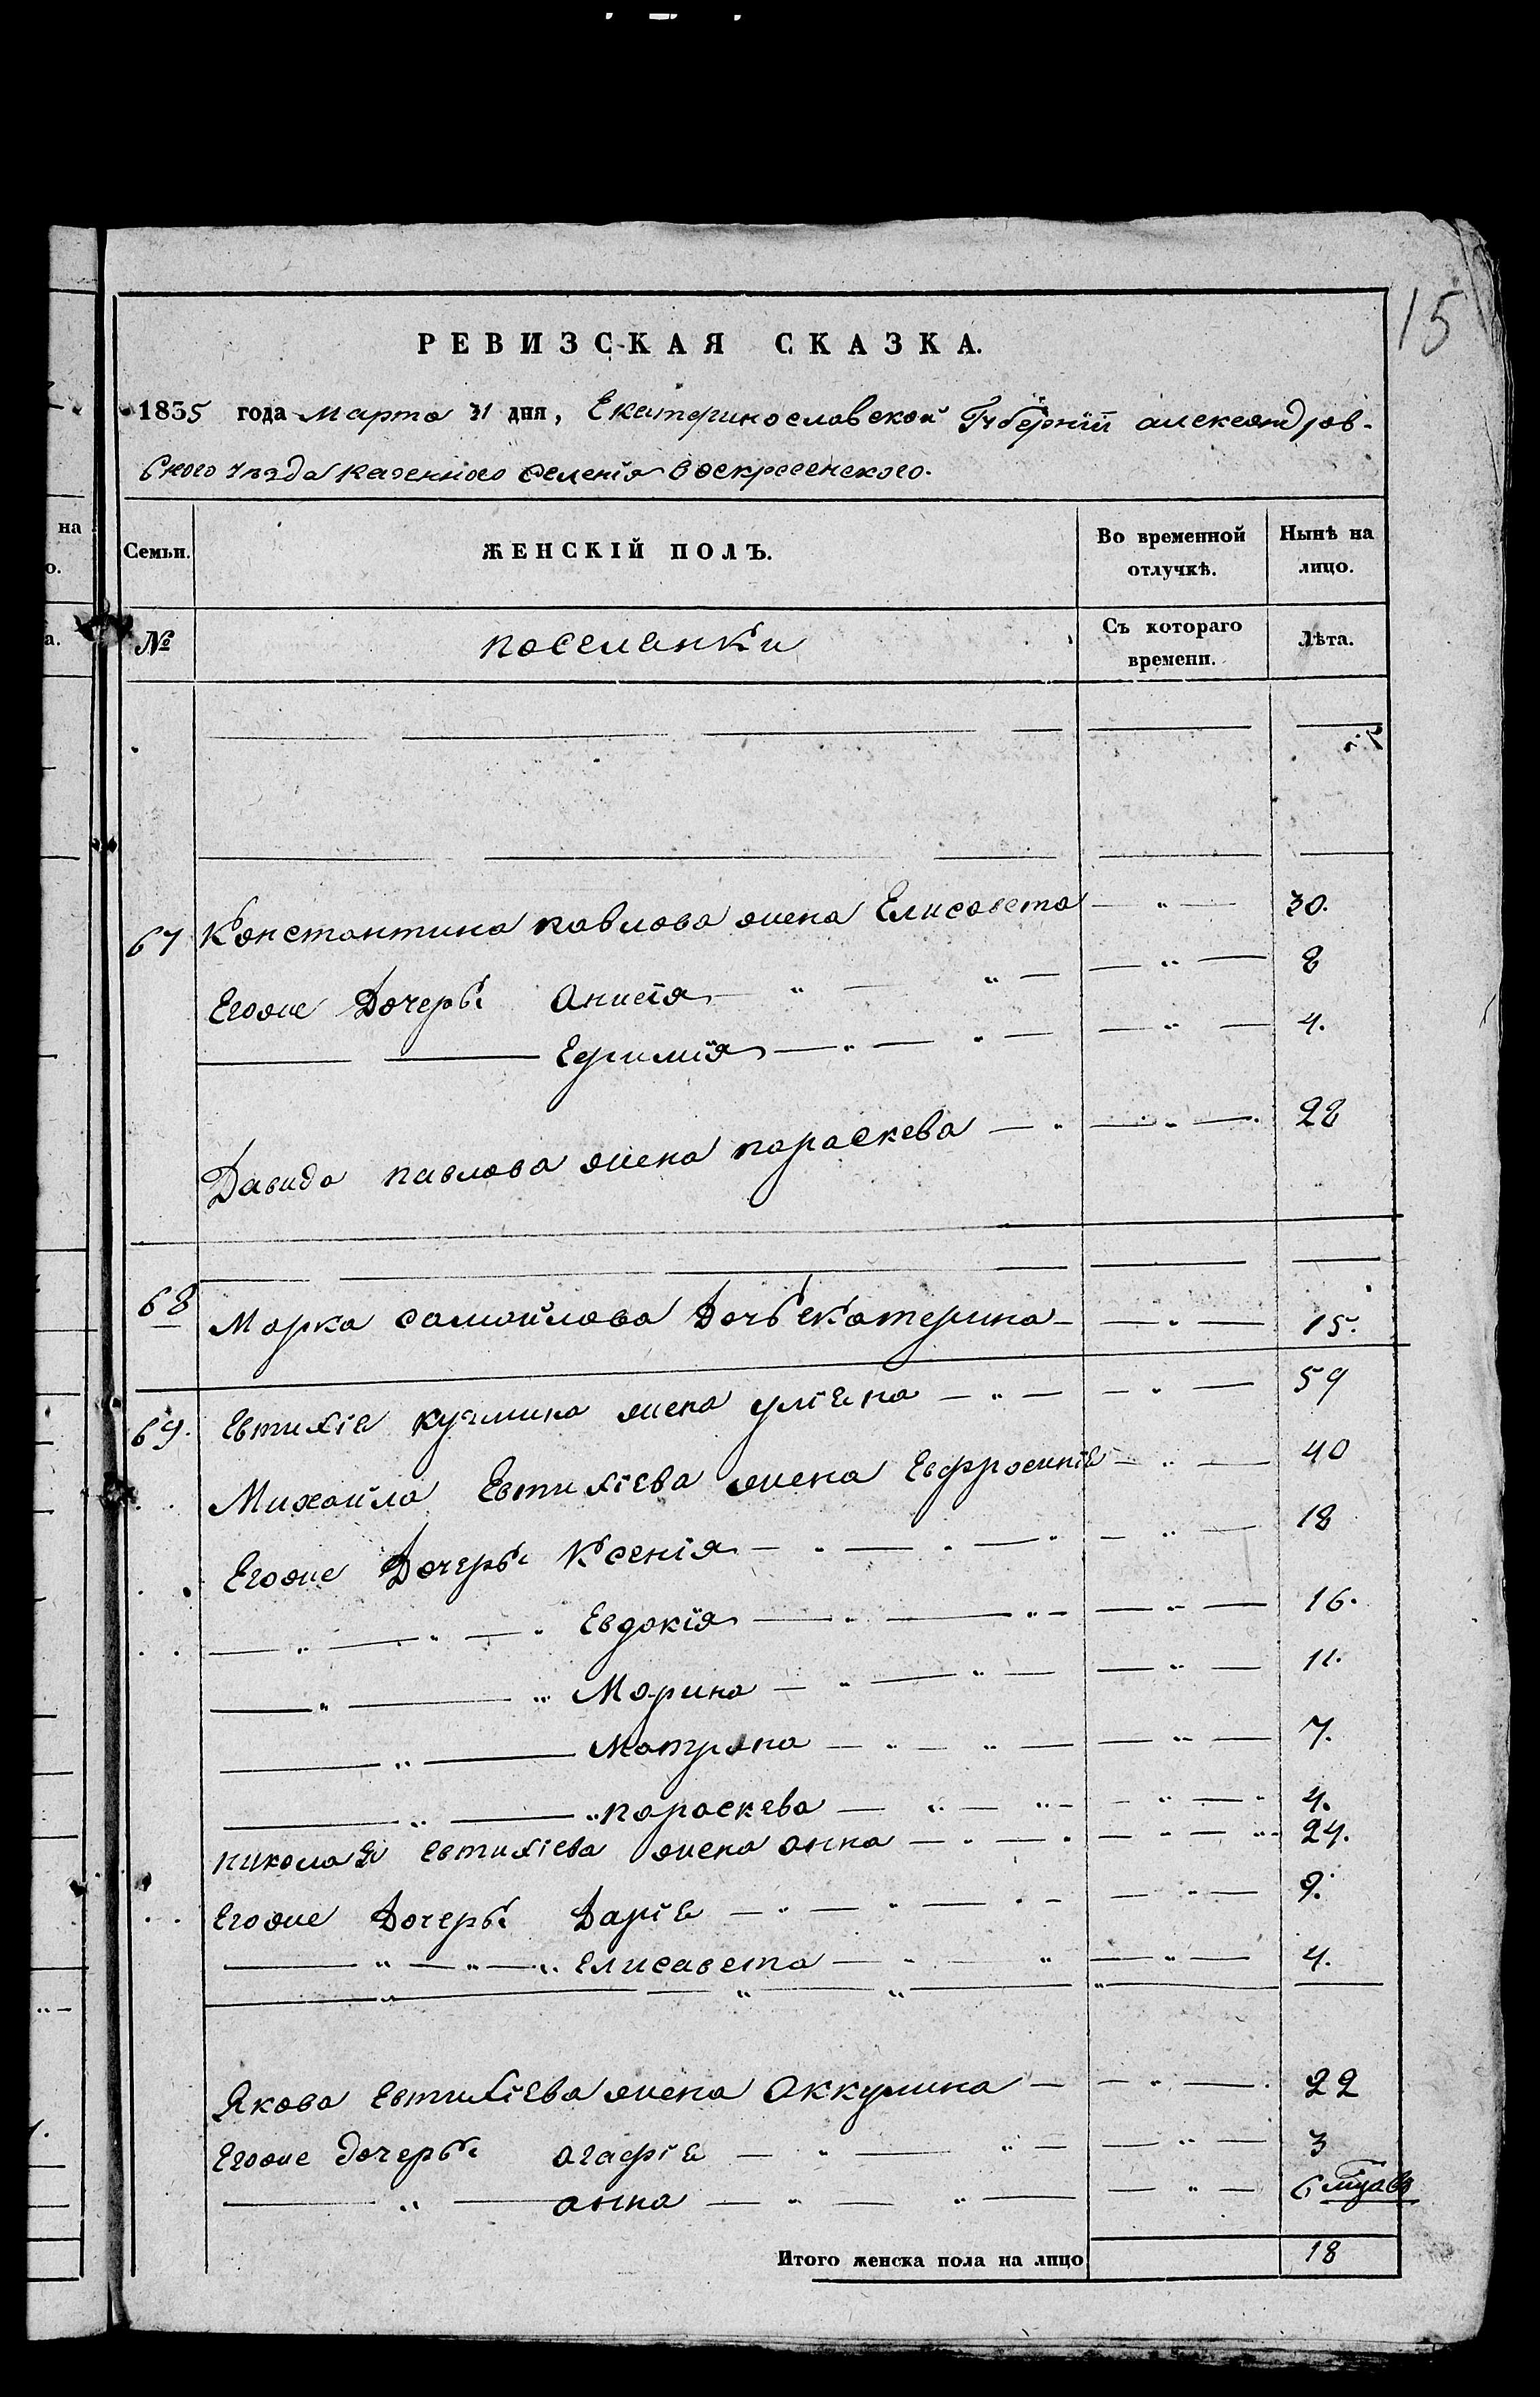 15
РЕВИЗСКАЯ СКАЗКА.
1835 года Марта 31 дня, Екатеринославской Губерніи александров-
ского уѣзда казенного селенія воскресенского.
на
о.
а.
Семьи.
ЖЕНСКІЙ ПОЛЪ.
Во временной отлучкѣ.
Нынѣ на лицо.
№
поселянки
Съ котораго времени.
Лѣта.
67 Константина павлова жена Елисавета — " — 30.
Егоже Дочеры Анисія — " — " — — " — 8
— — Ефимія — " — " — — " — 4.
Давида павлова жена параскева — " — " — 28
68 Марка самойлова Дочь екатерина — — " — 15.
69. Евтихія кузмина жена уліяна — " — — " — 59
Михайла Евтихіева жена Евфросинія — " — 40
Егоже Дочеры Ксенія — " — " — " — " — 18
— " — " — " Евдокія — " — " — — " — 16.
— " — " Марина — " — " — — " — 11.
— " — Матрона — " — " — — " — 7.
— " — " параскева — " — " — — " — " 4.
николая евтихіева жена анна — " — " — " — " 24.
Егоже Дочеры Дарія — " — " — " — — " — 9.
— " — " — " Елисавета — " — " — " — 4.
Якова Евтихіева жена Аккулина — — " — 22
Егоже дочеры агафія — " — " — — " — 3
— " — анна — " — " — — " — 6 мцавъ
Итого женска пола на лицо 18